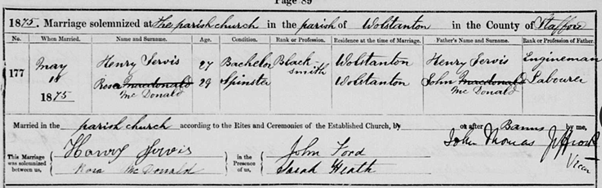 Page 89
1875. Marriage solemnized at The parish church in the parish of Wolstanton in the County of Stafford
No. When Married. Name and Surname. Age. Condition. Rank or Profession. Residence at the time of Marriage. Father's Name and Surname. Rank or Profession of Father.
177 May 11 1875 Henry Jervis 27 Bachelor Black-smith Wolstanton Henry Jervis Engineman
Rosa Macdonald Mc Donald 29 Spinster Wolstanton John Macdonald Mc Donald Labourer
Married in the parish church according to the Rites and Ceremonies of the Established Church, by or after Banns by me,
This Marriage was solemnized between us, Henry Jervis Rosa Mc Donald In the Presence of us, John Ford Sarah Heath John Thomas Jeffcock Vicar